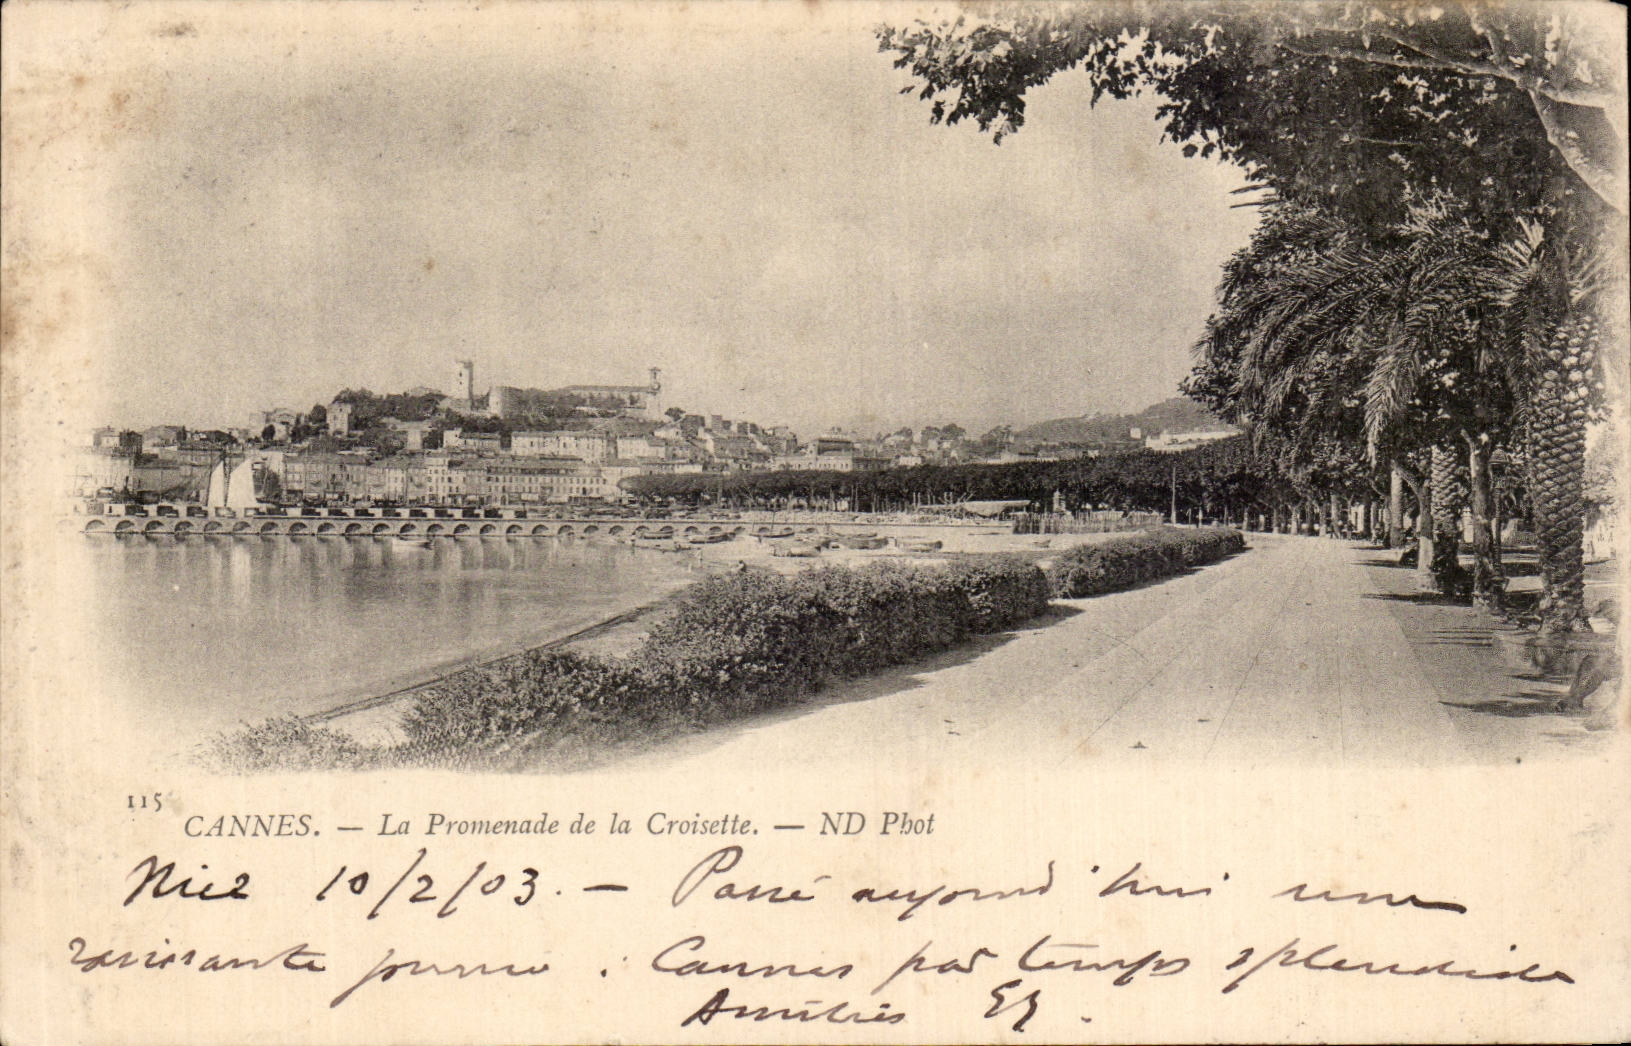 115
CANNES. — La Promenade de la Croisette. — ND Phot
Nice 10/2/03. — Passé aujourd'hui une
ravissante journée : Cannes par temps splendide
Amitiés